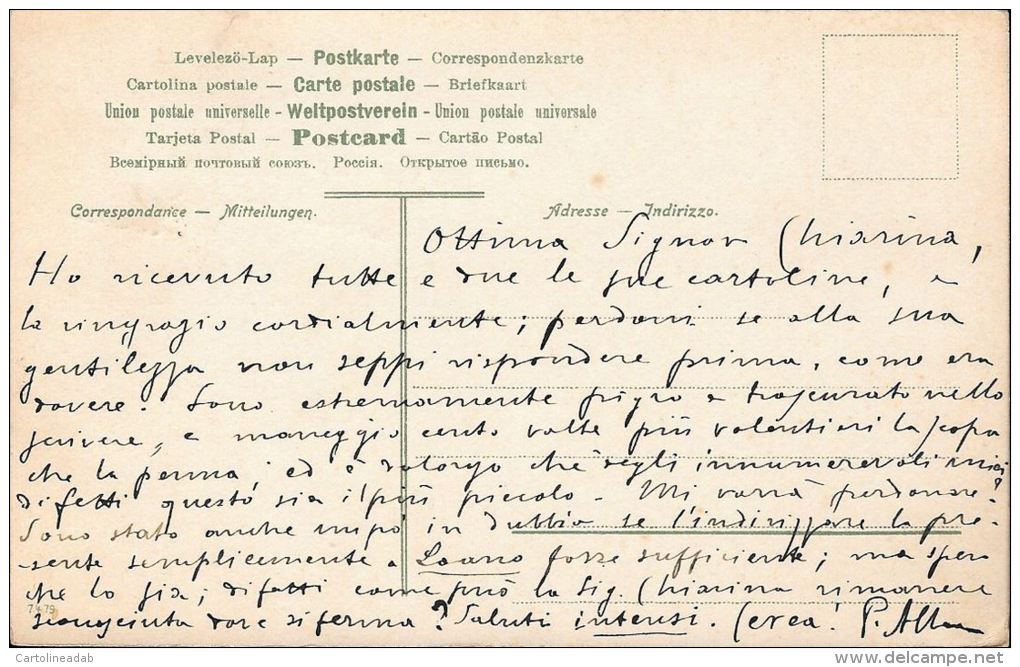 Levelező-Lap — Postkarte — Correspondenzkarte
Cartolina postale — Carte postale — Briefkaart
Union postale universelle - Weltpostverein - Union postale universale
Tarjeta Postal — Postcard — Cartão Postal
Всемірный почтовый союзъ. Россія. Открытое письмо.
Correspondance — Mitteilungen.
Adresse — Indirizzo.
Ottima Signor Chiarina,
Ho ricevuto tutte e due le sue cartoline, e
la ringrazio cordialmente; perdoni se alla sua
gentilezza non seppi rispondere prima, come era
dovere. Sono estremamente pigro e trascurato nello
scrivere, e maneggio cento volte più volentieri la scopa
che la penna; ed è che degli innumerevoli miei
difetti questo sia il più piccolo - Mi vorrà perdonare?
Sono stato anche un po' in dubbio se l'indirizzare la pre-
sente semplicemente a Loano fosse sufficiente; ma spero
che lo sia; difatti come può la Sig. Chiarina rimanere
sconosciuta dove si ferma? Saluti intensi. Cerea! P. Allen
7479
www.delcampe.net
Cartolineadab